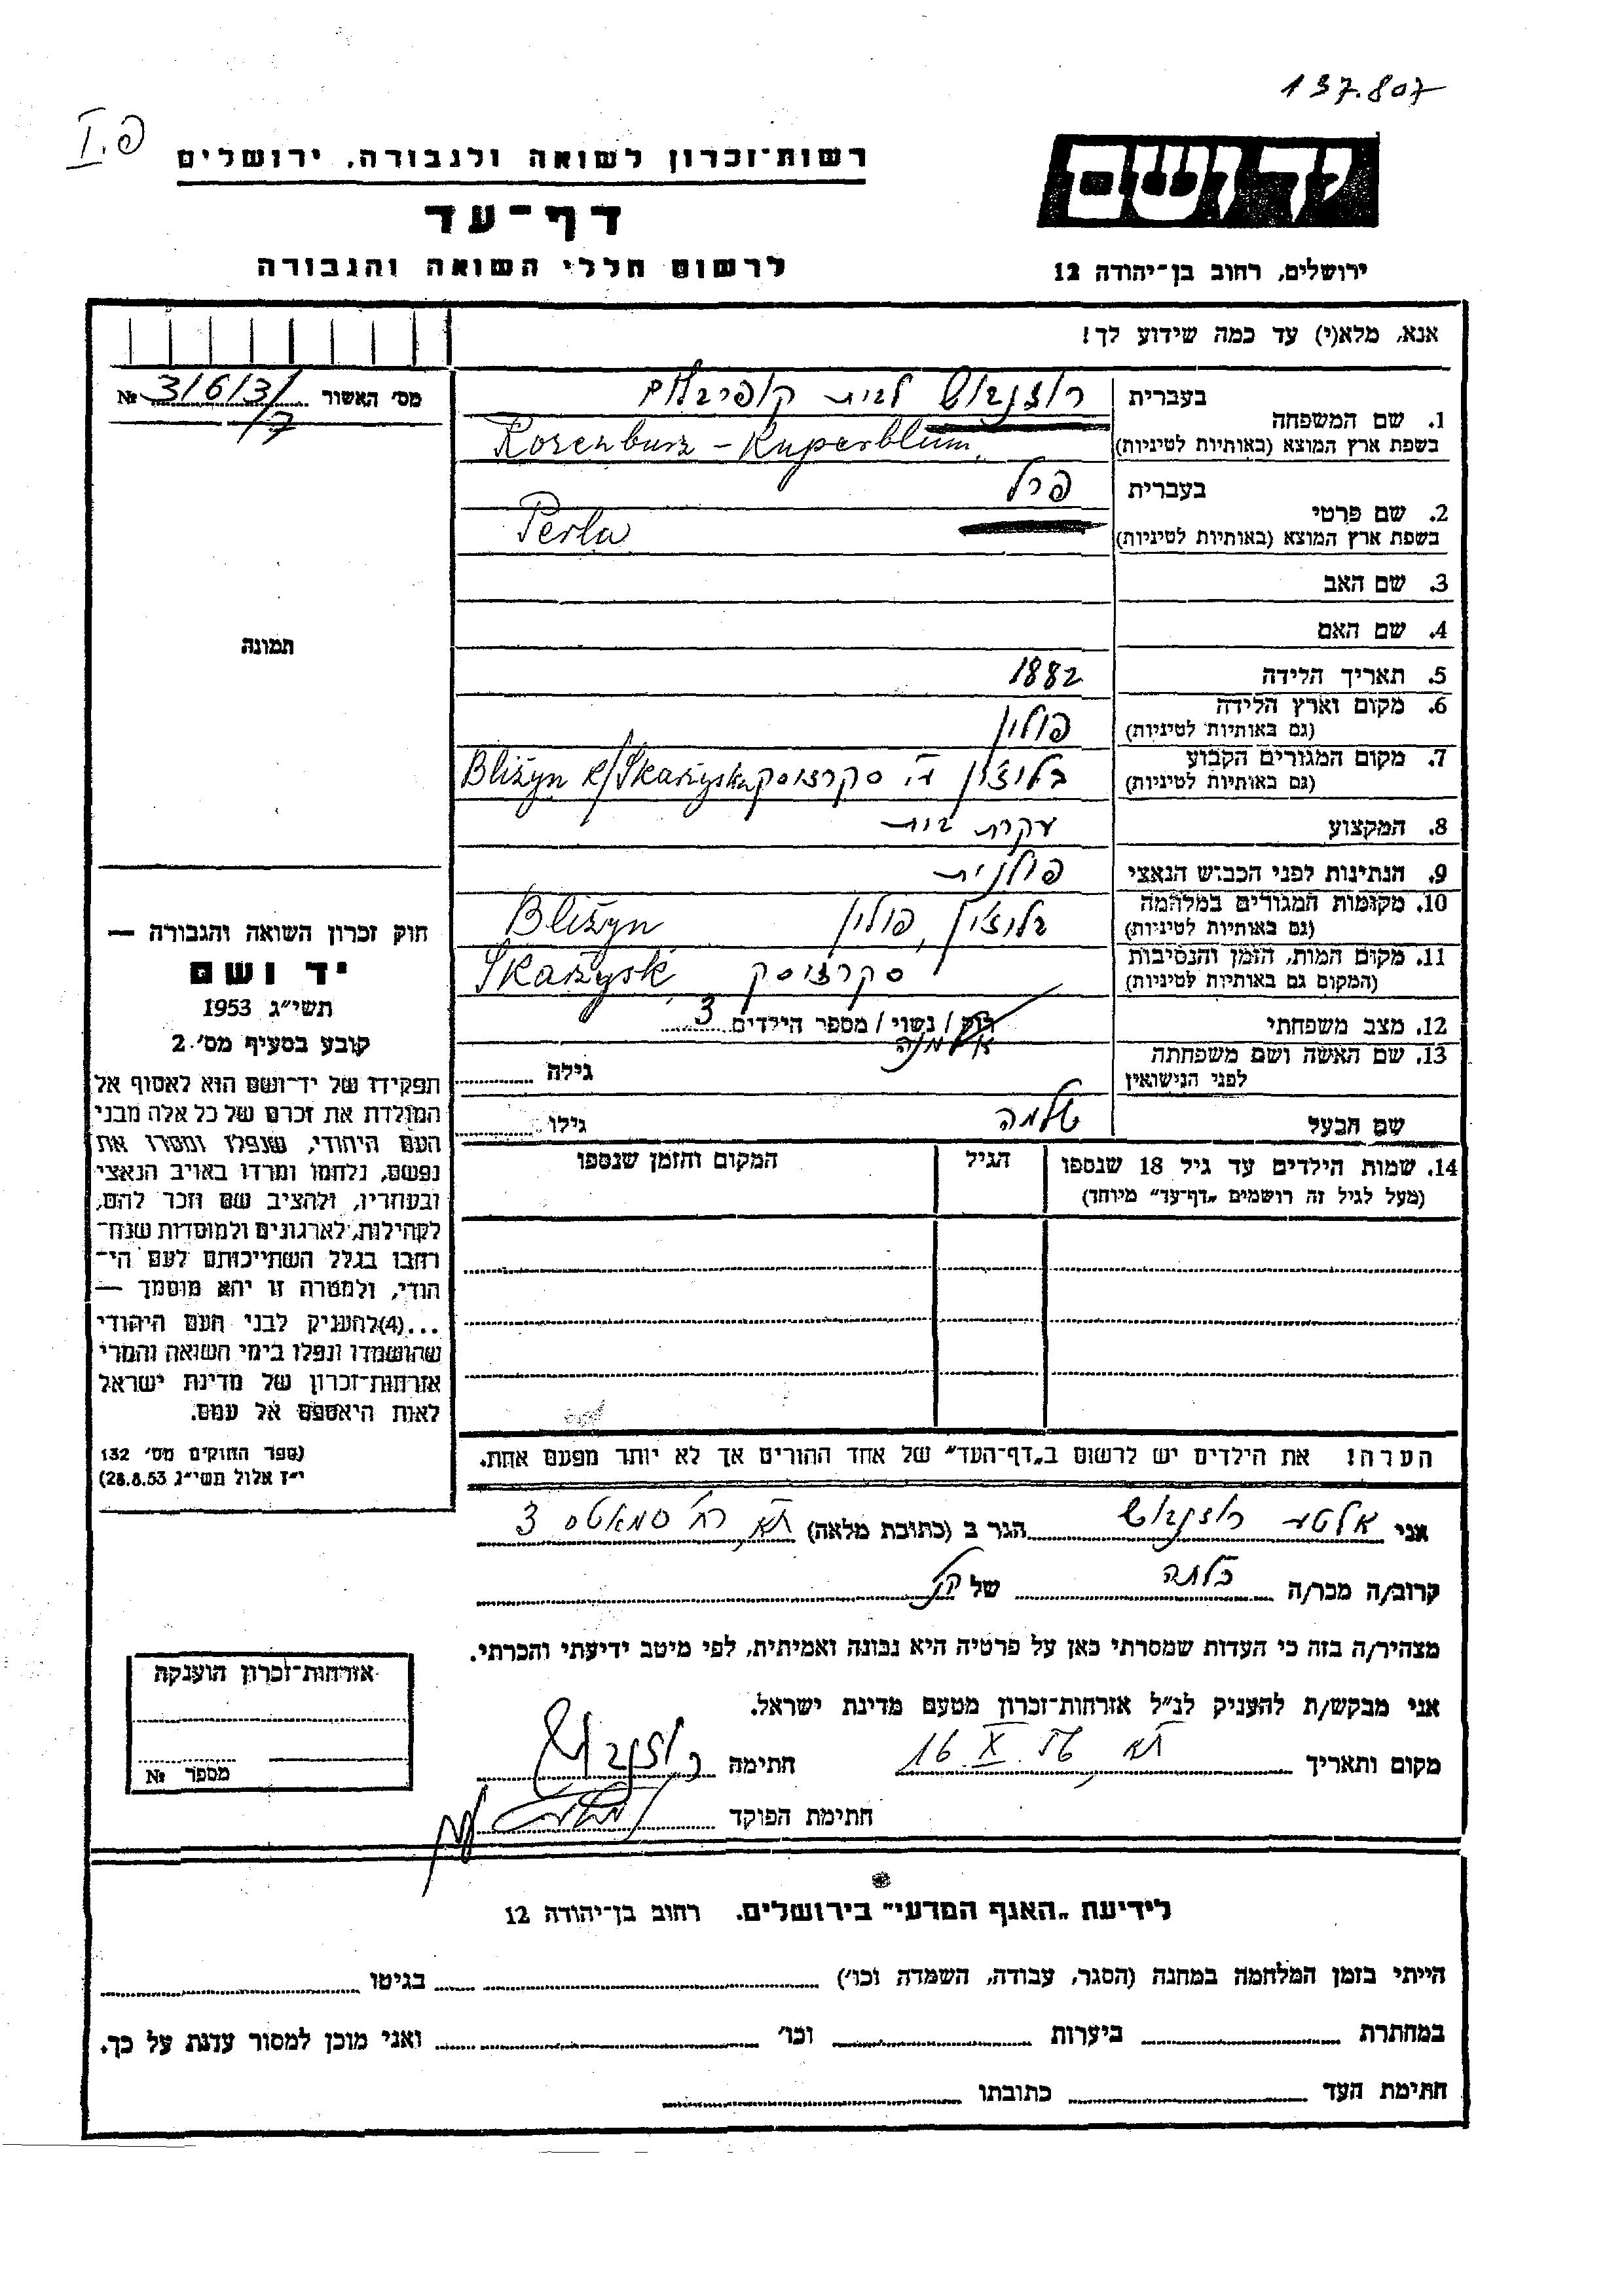 137.807
פ. I
יד ושם
רשות־זכרון לשואה ולגבורה, ירושלים
דף־עד
לרשום חללי השואה והגבורה
ירושלים, רחוב בן־יהודה 12
אנא, מלא(י) עד כמה שידוע לך!
מס' האשור № 3/6/3/
7
בעברית
1. שם המשפחה
בשפת ארץ המוצא (באותיות לטיניות)
לבית קופרבלום
Rozenbusz - Kuperblum
בעברית פרל
2. שם פרטי
בשפת ארץ המוצא (באותיות לטיניות) Perla
3. שם האב
4. שם האם
5. תאריך הלידה 1882
6. מקום וארץ הלידה פולין
(גם באותיות לטיניות)
7. מקום המגורים הקבוע
(גם באותיות לטיניות)
Bliżyn k/Skarżyska
8. המקצוע עקרת בית
9. הנתינות לפני הכבוש הנאצי פולנית
10. מקומות המגורים במלחמה
(גם באותיות לטיניות)
בליז'ין, פולין Bliżyn
11. מקום המות, הזמן והנסיבות
(המקום גם באותיות לטיניות)
סקרז'יסק Skarżysk
12. מצב משפחתי רווק / נשוי / מספר הילדים 3
אלמנה
13. שם האשה ושם משפחתה
לפני הנישואין
גילה
שם הבעל שלמה גילו
14. שמות הילדים עד גיל 18 שנספו
(מעל לגיל זה רושמים „דף־עד" מיוחד)
הגיל
המקום והזמן שנספו
הערה! את הילדים יש לרשום ב„דף־העד" של אחד ההורים אך לא יותר מפעם אחת.
תמונה
חוק זכרון השואה והגבורה —
יד ושם
תשי"ג 1953
קובע בסעיף מס' 2
תפקידו של יד־ושם הוא לאסוף אל
המולדת את זכרם של כל אלה מבני
העם היהודי, שנפלו ומסרו את
נפשם, נלחמו ומרדו באויב הנאצי
ובעוזריו, ולהציב שם וזכר להם,
לקהילות, לארגונים ולמוסדות שנח־
רחבו בגלל השתייכותם לעם הי־
הודי, ולמטרה זו יהא מוסמך —
...(4) להעניק לבני העם היהודי
שהושמדו ונפלו בימי השואה והמרי
אזרחות־זכרון של מדינת ישראל
לאות היאספם אל עמם.
(ספר החוקים מס' 132
י"ז אלול תשי"ג 28.8.53)
אני הגר ב (כתובת מלאה) 3
קרוב/ה מכר/ה כלתה של
מצהיר/ה בזה כי העדות שמסרתי כאן על פרטיה היא נכונה ואמיתית, לפי מיטב ידיעתי והכרתי.
אני מבקש/ת להעניק לנ"ל אזרחות־זכרון מטעם מדינת ישראל.
מקום ותאריך ת"א 16 X 56 חתימה
חתימת הפוקד
אזרחות־זכרון הוענקה
מספר №
לידיעת „האגף המדעי" בירושלים. רחוב בן־יהודה 12
הייתי בזמן המלחמה במחנה (הסגר, עבודה, השמדה וכו') בגיטו
במחתרת ביערות וכו' ואני מוכן למסור עדות על כך.
חתימת העד כתובתו